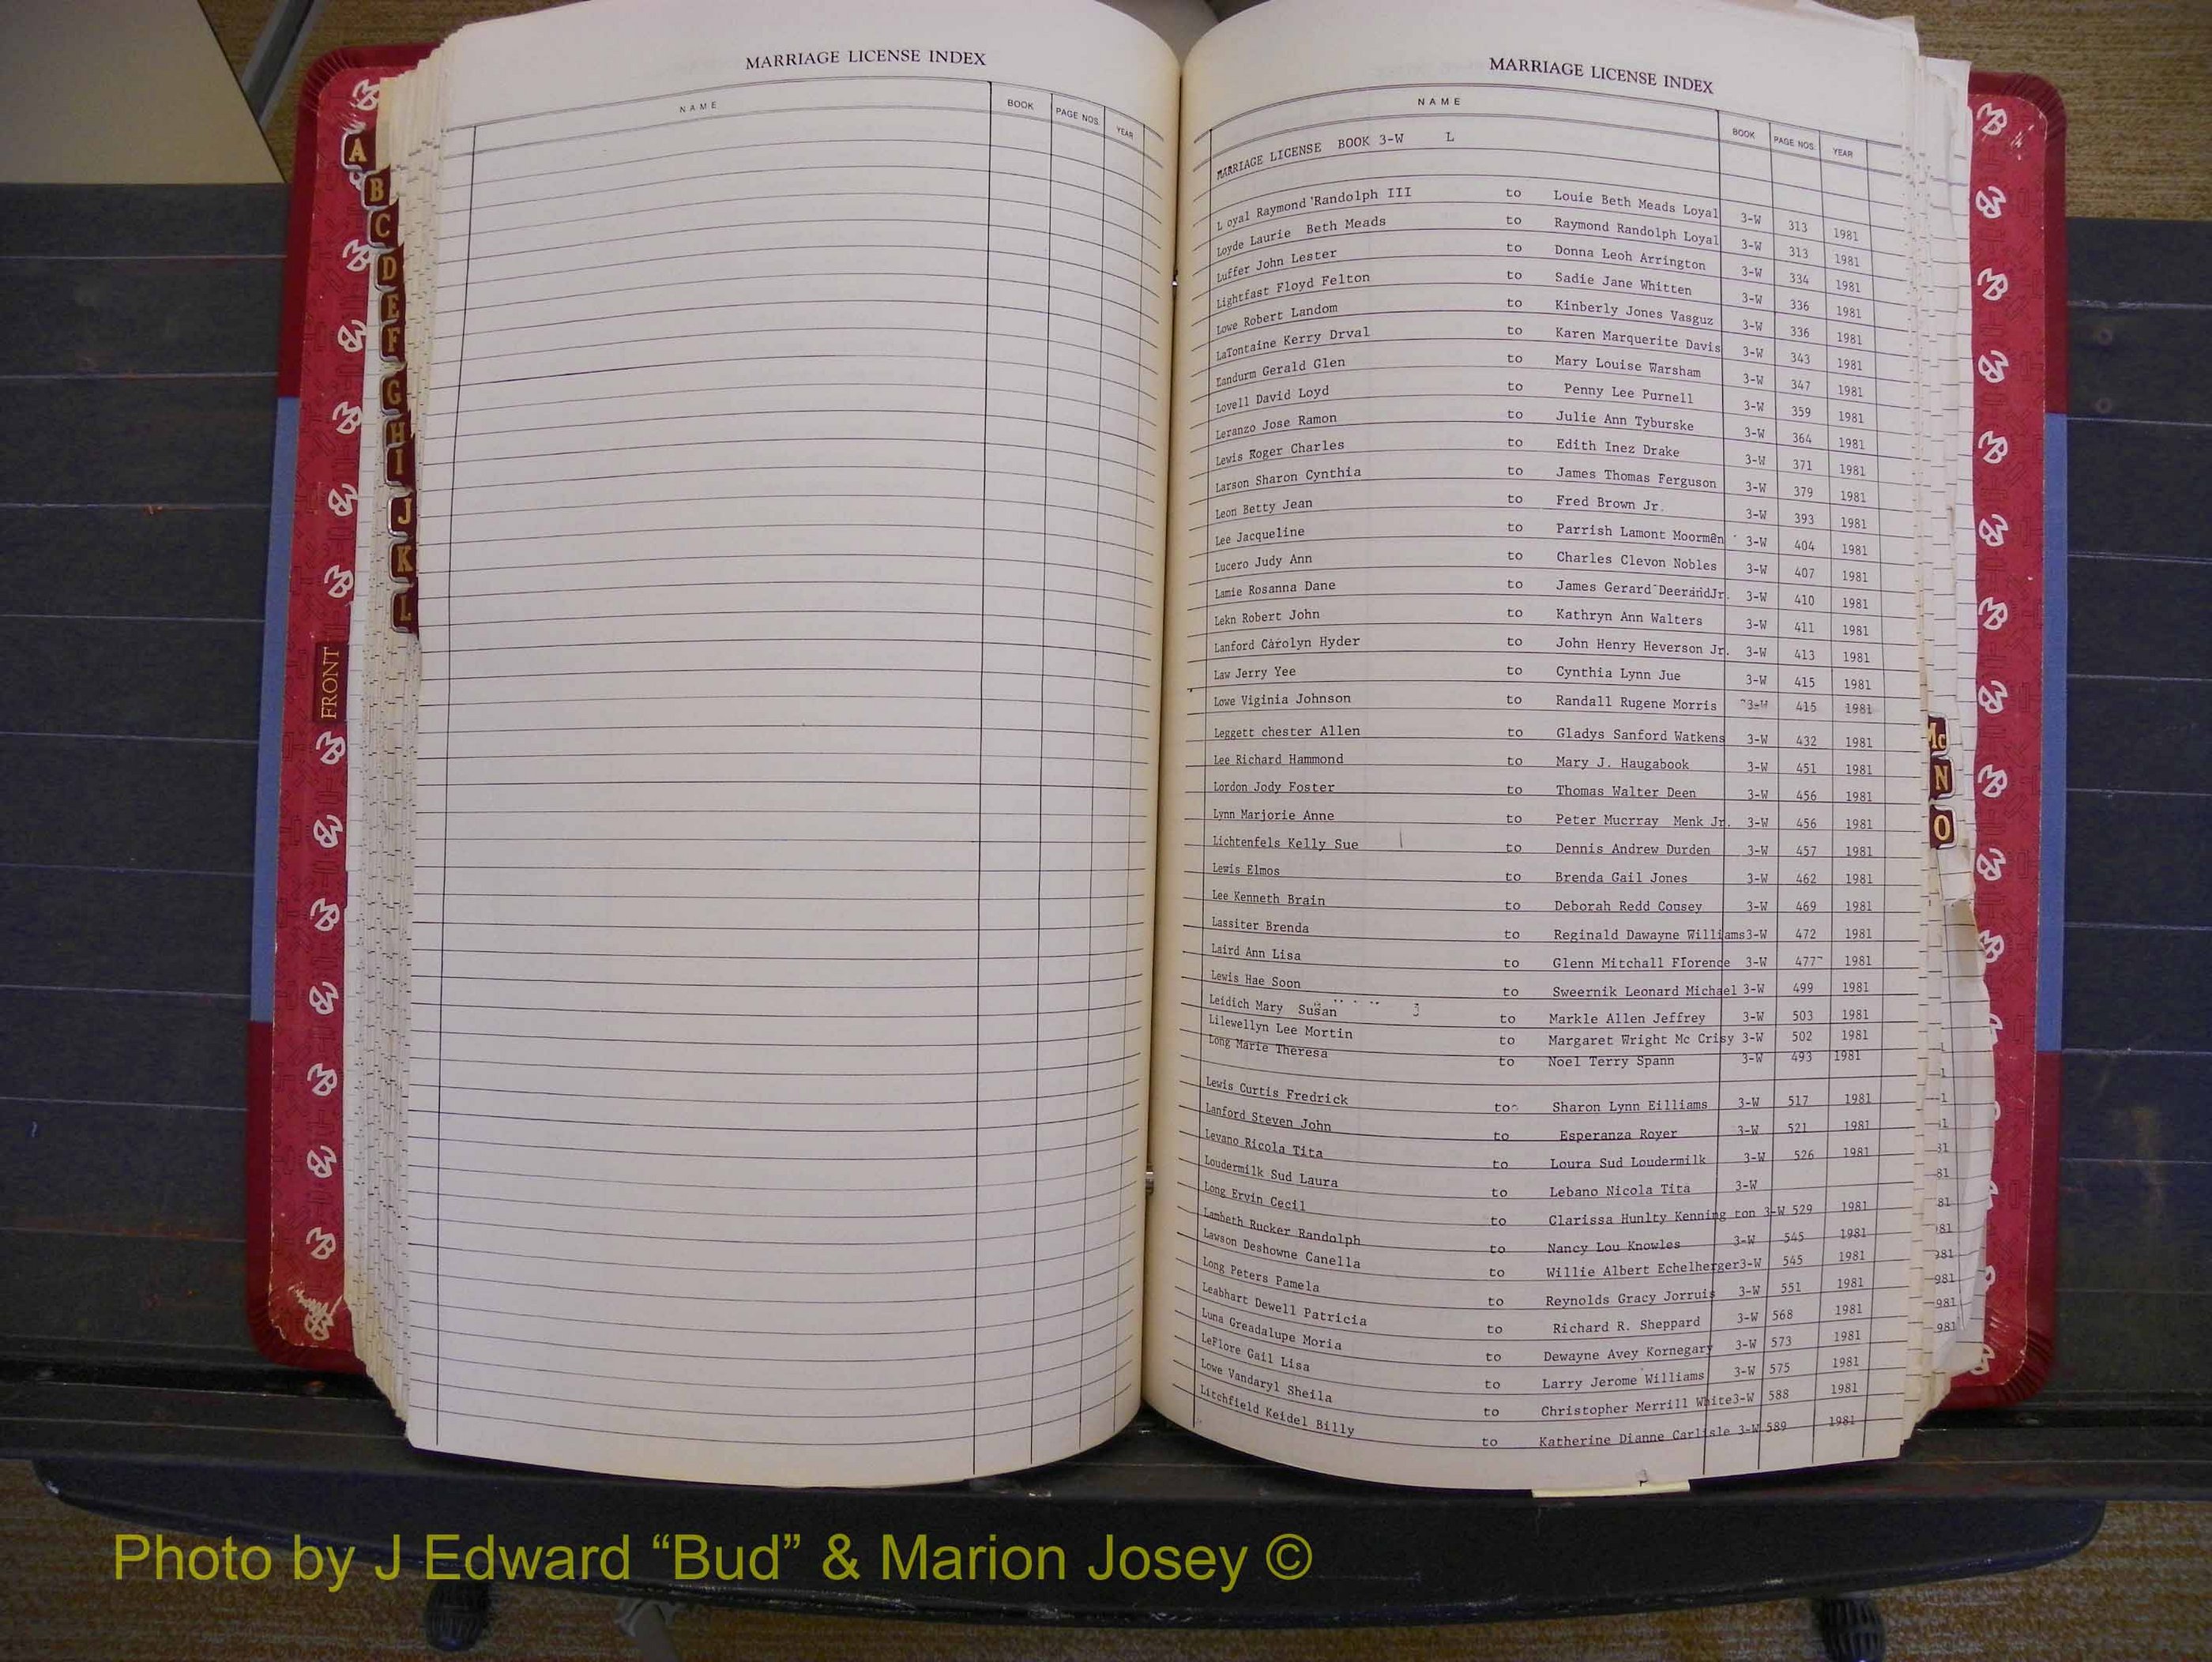 MARRIAGE LICENSE INDEX
NAME BOOK PAGE NOS. YEAR
A
B
C
D
E
F
G
H
I
J
K
L
FRONT
MARRIAGE LICENSE INDEX
NAME BOOK PAGE NOS. YEAR
MARRIAGE LICENSE BOOK 3-W L
L oyal Raymond Randolph III to Louie Beth Meads Loyal 3-W 313 1981
Loyde Laurie Beth Meads to Raymond Randolph Loyal 3-W 313 1981
Luffer John Lester to Donna Leoh Arrington 3-W 334 1981
Lightfast Floyd Felton to Sadie Jane Whitten 3-W 336 1981
Lowe Robert Landom to Kinberly Jones Vasguz 3-W 336 1981
LaTontaine Kerry Drval to Karen Marquerite Davis 3-W 343 1981
Landurm Gerald Glen to Mary Louise Warsham 3-W 347 1981
Lovell David Loyd to Penny Lee Purnell 3-W 359 1981
Leranzo Jose Ramon to Julie Ann Tyburske 3-W 364 1981
Lewis Roger Charles to Edith Inez Drake 3-W 371 1981
Larson Sharon Cynthia to James Thomas Ferguson 3-W 379 1981
Leon Betty Jean to Fred Brown Jr. 3-W 393 1981
Lee Jacqueline to Parrish Lamont Moormen 3-W 404 1981
Lucero Judy Ann to Charles Clevon Nobles 3-W 407 1981
Lamie Rosanna Dane to James Gerard DeerandJr. 3-W 410 1981
Lekn Robert John to Kathryn Ann Walters 3-W 411 1981
Lanford Carolyn Hyder to John Henry Heverson Jr. 3-W 413 1981
Law Jerry Yee to Cynthia Lynn Jue 3-W 415 1981
Lowe Viginia Johnson to Randall Rugene Morris 3-W 415 1981
Leggett chester Allen to Gladys Sanford Watkens 3-W 432 1981
Lee Richard Hammond to Mary J. Haugabook 3-W 451 1981
Lordon Jody Foster to Thomas Walter Deen 3-W 456 1981
Lynn Marjorie Anne to Peter Mucrray Menk Jr. 3-W 456 1981
Lichtenfels Kelly Sue to Dennis Andrew Durden 3-W 457 1981
Lewis Elmos to Brenda Gail Jones 3-W 462 1981
Lee Kenneth Brain to Deborah Redd Cousey 3-W 469 1981
Lassiter Brenda to Reginald Dawayne Williams3-W 472 1981
Laird Ann Lisa to Glenn Mitchall Florence 3-W 477 1981
Lewis Hae Soon to Sweernik Leonard Michael 3-W 499 1981
Leidich Mary Susan to Markle Allen Jeffrey 3-W 503 1981
Lilewellyn Lee Mortin to Margaret Wright Mc Crisy 3-W 502 1981
Long Marie Theresa to Noel Terry Spann 3-W 493 1981
Lewis Curtis Fredrick to Sharon Lynn Eilliams 3-W 517 1981
Lanford Steven John to Esperanza Royer 3-W 521 1981
Levano Ricola Tita to Loura Sud Loudermilk 3-W 526 1981
Loudermilk Sud Laura to Lebano Nicola Tita 3-W
Long Ervin Cecil to Clarissa Hunlty Kenning ton 3-W 529 1981
Lambeth Rucker Randolph to Nancy Lou Knowles 3-W 545 1981
Lawson Deshowne Canella to Willie Albert Echelherger3-W 545 1981
Long Peters Pamela to Reynolds Gracy Jorruis 3-W 551 1981
Leabhart Dewell Patricia to Richard R. Sheppard 3-W 568 1981
Luna Greadalupe Moria to Dewayne Avey Kornegary 3-W 573 1981
LeFlore Gail Lisa to Larry Jerome Williams 3-W 575 1981
Lowe Vandaryl Sheila to Christopher Merrill White3-W 588 1981
Litchfield Keidel Billy to Katherine Dianne Carlisle 3-W 589 1981
Mc
N
O
Photo by J Edward “Bud” & Marion Josey ©